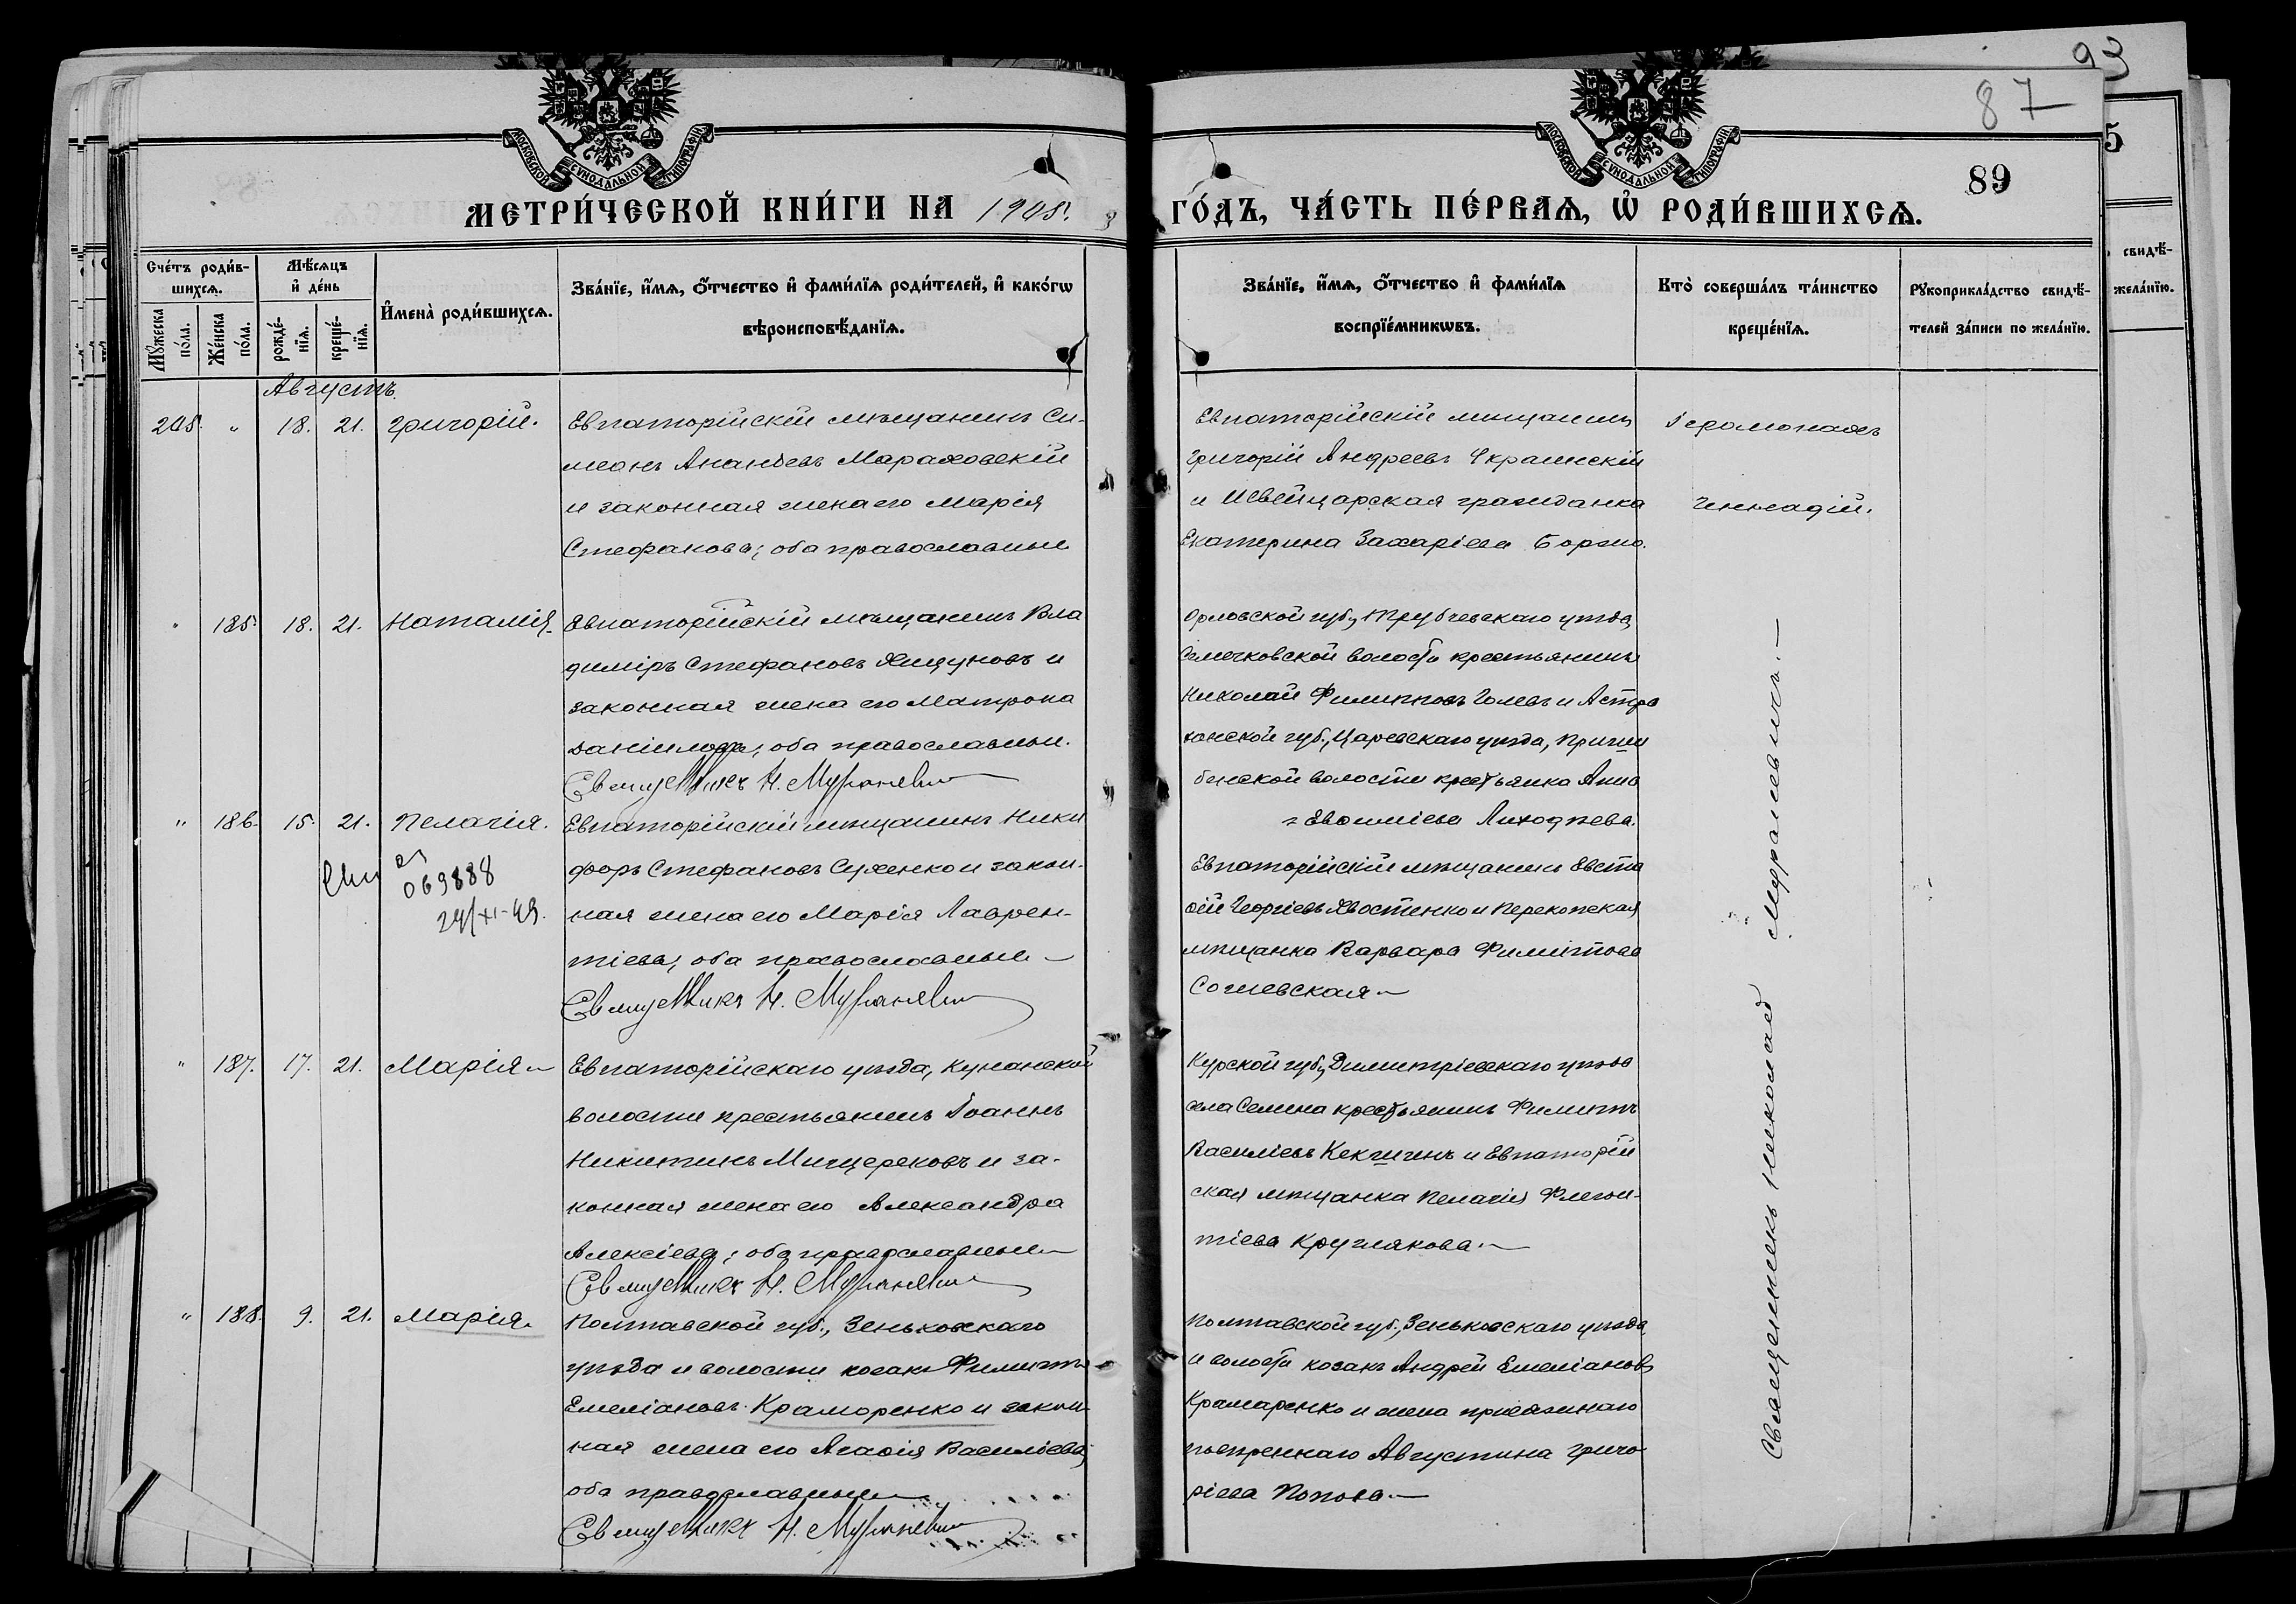 93
87
89
5
МОСКОВСКОЙ СѴНОДАЛЬНОЙ ТИПОГРАФІИ
МОСКОВСКОЙ СѴНОДАЛЬНОЙ ТИПОГРАФІИ
МЕТРИ́ЧЕСКОЙ КНИ́ГИ НА 1908.
ГО́ДЪ, ЧА́СТЬ ПЕ́РВАѦ, Ѡ҆ РОДИ́ВШИХСѦ.
Сче́тъ роди́в-
шихсѧ.
Мꙋ́жеска по́ла.
Же́нска по́ла.
Мѣ́сѧцъ и҆ де́нь
рожде́-
нїѧ.
креще́-
нїѧ.
И҆мена̀ роди́вшихсѧ.
Зва́нїе, и҆́мѧ, ѻ҆́тчество и҆ фами́лїѧ роди́телей, и҆ како́гѡ
вѣроисповѣ́данїѧ.
Зва́нїе, и҆́мѧ, ѻ҆́тчество и҆ фами́лїѧ
воспрїе́мникѡвъ.
Кто̀ соверша́лъ та́инство
креще́нїѧ.
Рꙋкоприкла́дство свидѣ́-
телей за́писи по жела́нїю.
свидѣ́-
жела́нїю.
Августъ.
205. " 18. 21. Григорій.
Евпаторійскій мѣщанинъ Си-
меонъ Ананьевъ Мараховскій
и законная жена его Марія
Стефанова; оба православные
Евпаторійскій мѣщанинъ
Григорій Андреевъ Украинскій
и Швейцарская гражданка
Екатерина Захаріева
Іеромонахъ
Геннадій.
" 185. 18. 21. Наталія.
Евпаторійскій мѣщанинъ Вла
диміръ Стефановъ Ящуновъ и
законная жена его Матрона
Даніилова; оба православные.
Священникъ Н. Мураневичъ
Орловской губ., Трубчевскаго уѣзда
Семечковской волости крестьянинъ
Николай Филипповъ Голевъ и Астра
ханской губ., Царевскаго уѣзда, Приши
бинской волости крестьянка Анна
Евѳиміева Лиходѣева.
" 186. 15. 21. Пелагія.
069888
24/XI-49.
Евпаторійскій мѣщанинъ Ники
форъ Стефановъ Сухенко и закон-
ная жена его Марія Лаврен-
тіева; оба православные
Священникъ Н. Мураневичъ
Евпаторійскій мѣщанинъ Евста
ѳій Георгіевъ Хвостенко и Перекопская
мѣщанка Варвара Филиппова
Согиевская
" 187. 17. 21. Марія
Евпаторійскаго уѣзда, Кунанской
волости крестьянинъ Іоаннъ
Никитинъ Мищерековъ и за-
конная жена его Александра
Алексіева; оба православные
Священникъ Н. Мураневичъ
Курской губ., Димитріевскаго уѣзда
села Селина крестьянинъ Филиппъ
Василіевъ Кекшинъ и Евпаторій
ская мѣщанка Пелагія Флегон-
тіева Круглякова.
" 188. 9. 21. Марія.
Полтавской губ., Зеньковскаго
уѣзда и волости козакъ Филиппъ
Емеліановъ Краморенко и закон
ная жена его Агафія Василіева;
оба православные
Священникъ Н. Мураневичъ
Полтавской губ., Зеньковскаго уѣзда
и волости козакъ Андрей Емеліановъ
Крамаренко и жена присяжнаго
повѣреннаго Августина Григо
ріева Попова.
Священникъ Николай Мураневичъ.